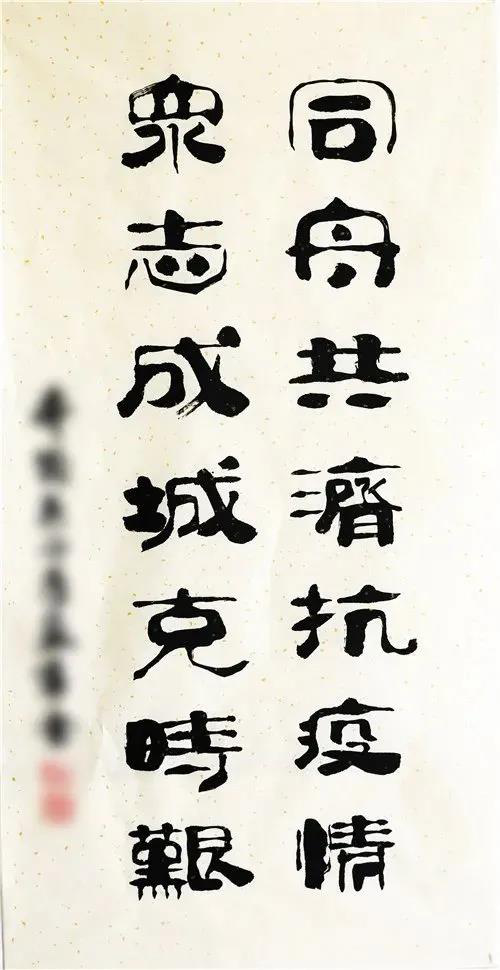 同舟共濟抗疫情
衆志成城克時艱